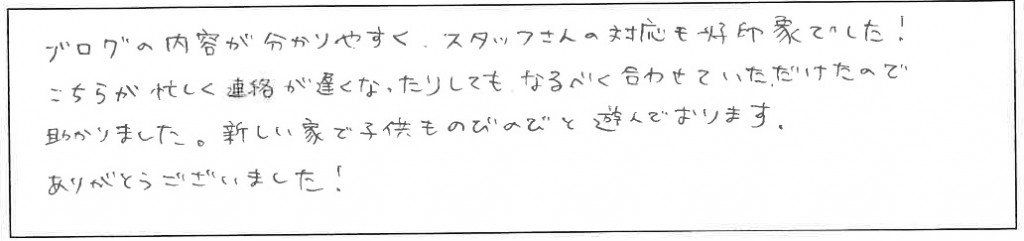 ブログの内容が分かりやすく、スタッフさんの対応も好印象でした!
こちらが忙しく連絡が遅くなったりしても、なるべく合わせていただけたので
助かりました。新しい家で子供ものびのびと遊んでおります。
ありがとうございました!